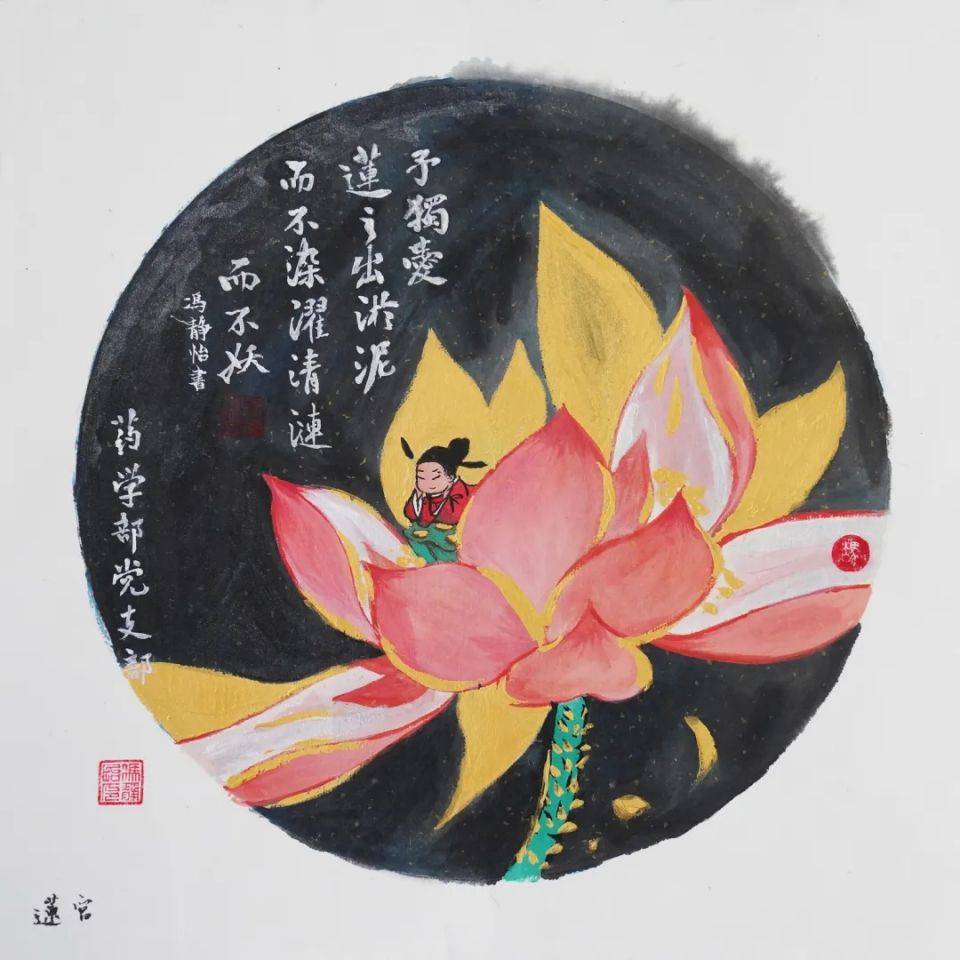 予獨愛
蓮之出淤泥
而不染濯清漣
而不妖
馮静怡書
药学部党支部
蓮官